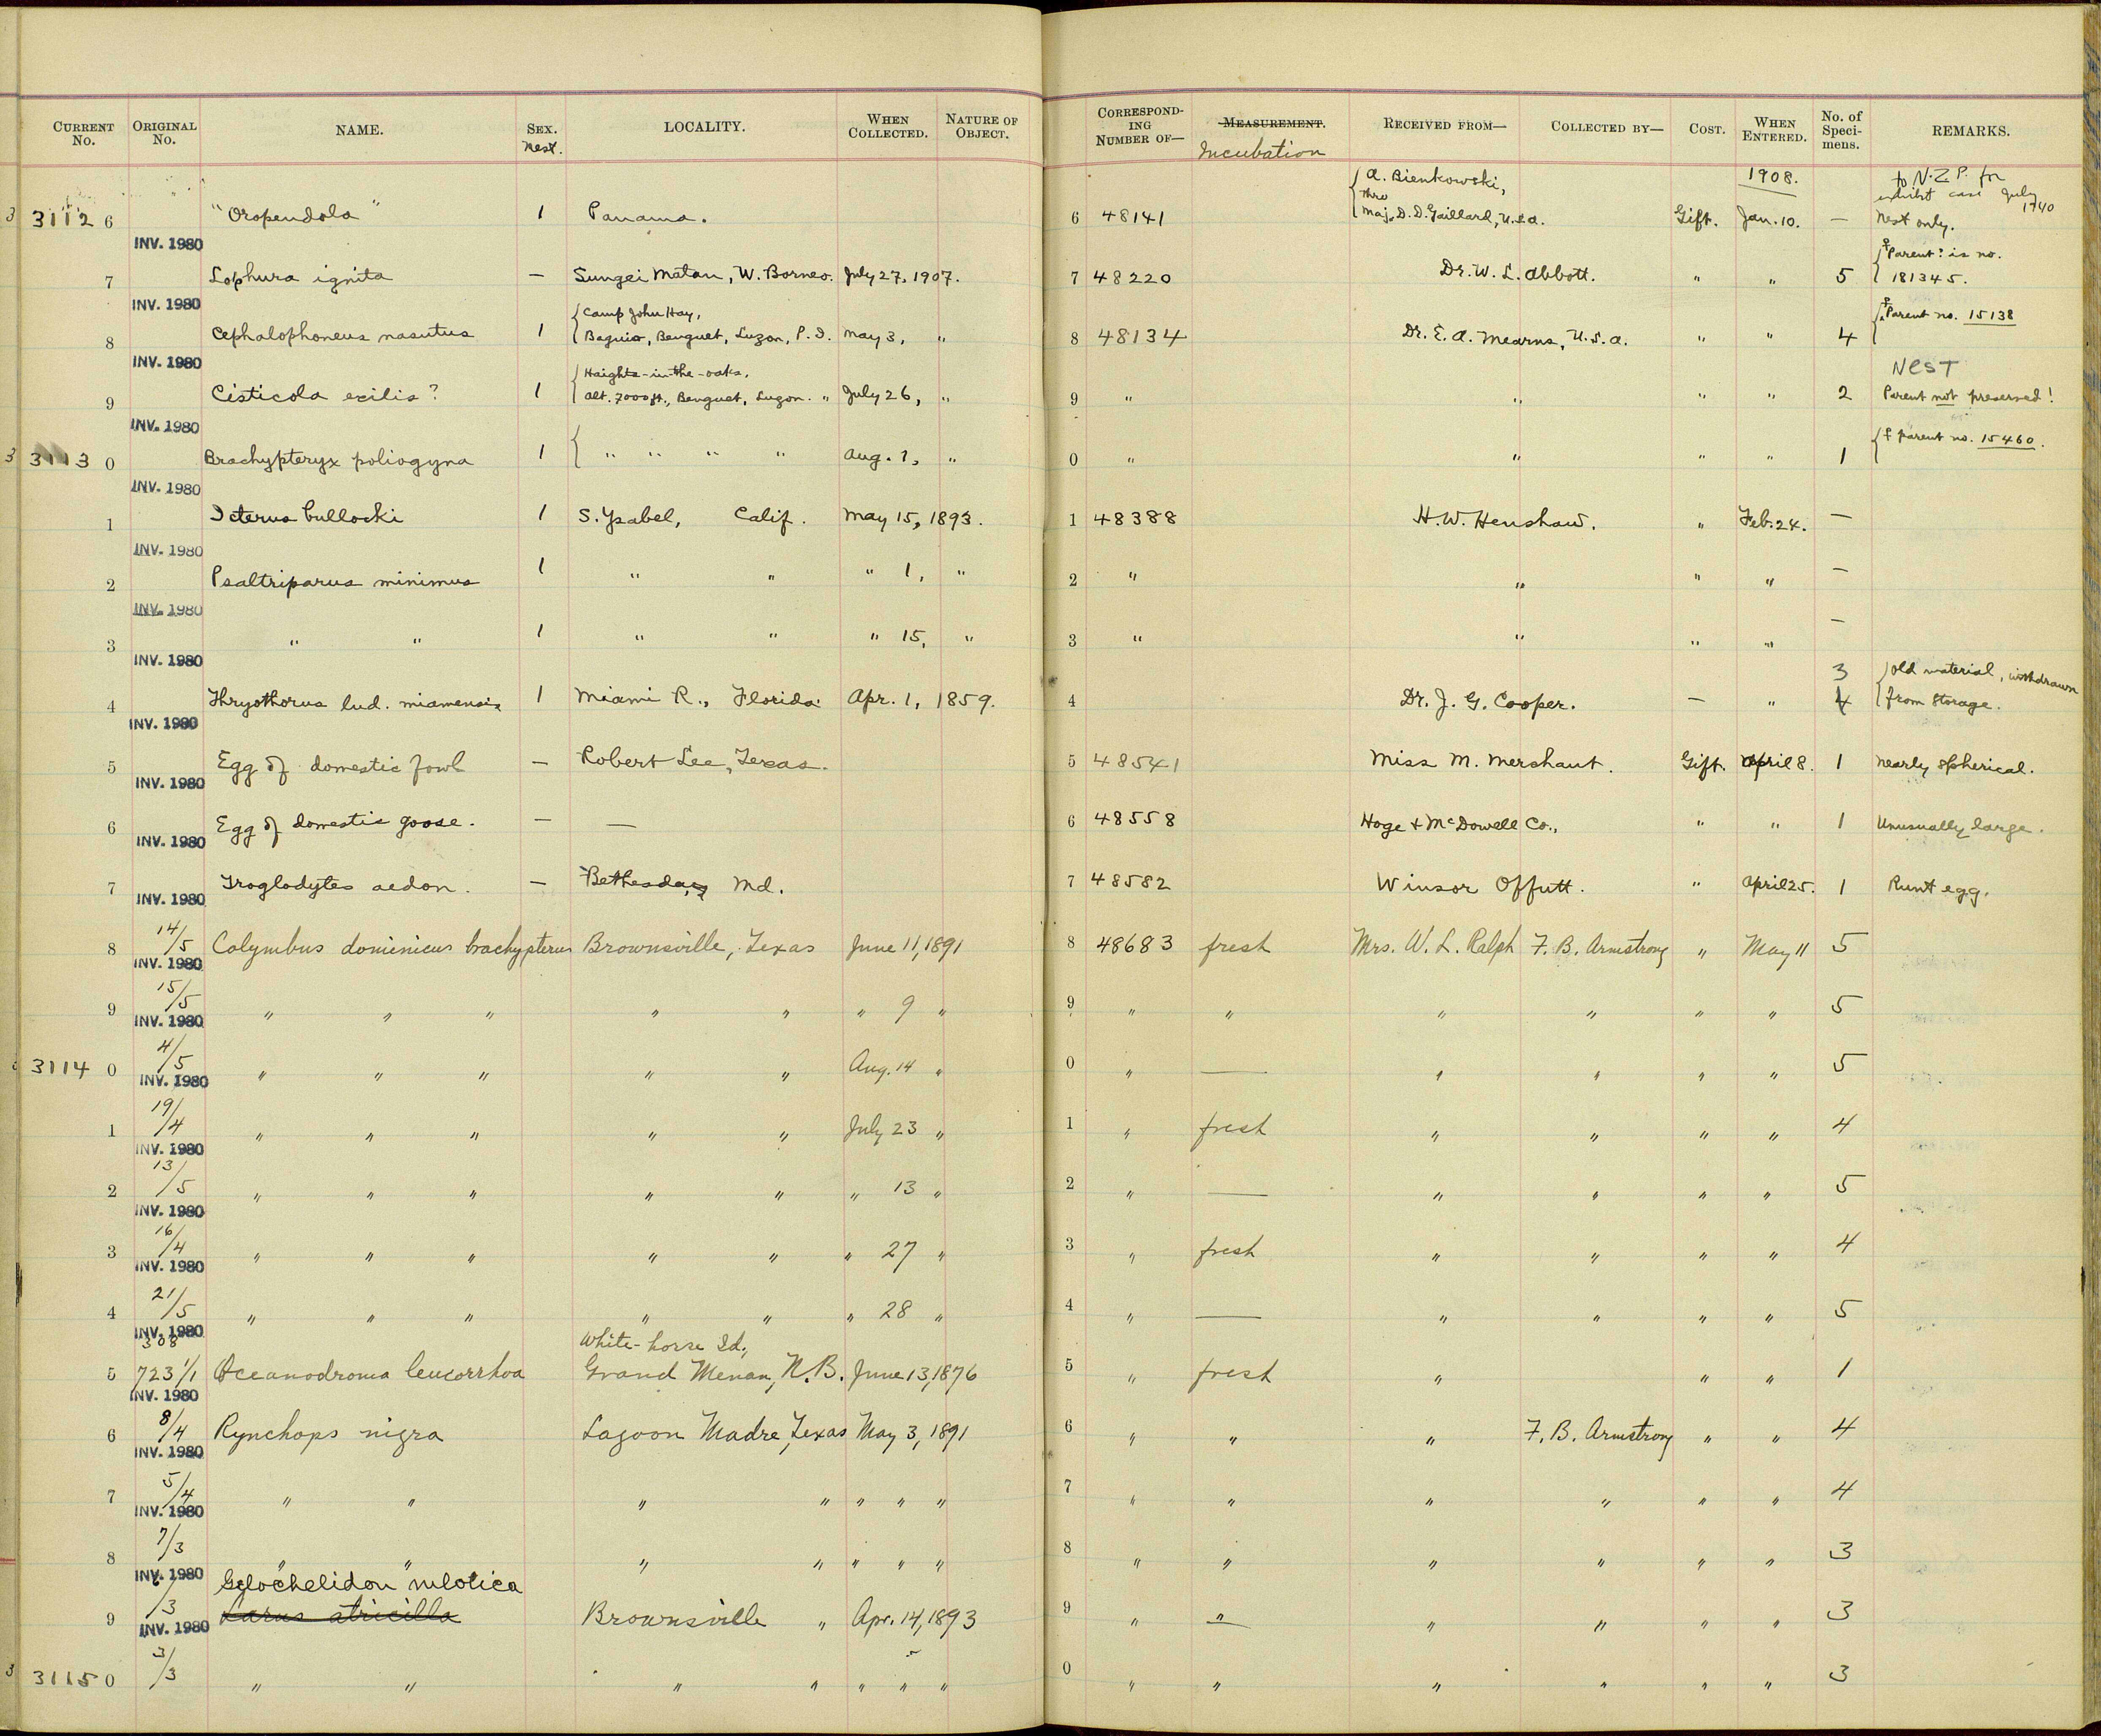 CURRENT No. ORIGINAL No. NAME. SEX. Nest. LOCALITY. WHEN COLLECTED. NATURE OF OBJECT. CORRESPONDING NUMBER OF— MEASUREMENT. Incubation RECEIVED FROM— COLLECTED BY— COST. WHEN ENTERED. No. of Specimens. REMARKS.
A. Bienkowski, 1908. to N.Z.P. for
thro exhibit case July 1940
3 3112 6 "Oropendola" 1 Panama. 6 48141 Maj. D. D. Gaillard, U.S.A. Gift. Jan. 10. — Nest only.
INV. 1980
♀ Parent? is no.
7 Lophura ignita — Sungei Matan, W. Borneo. July 27, 1907. 7 48220 Dr. W. L. Abbott. " " 5 181345.
INV. 1980
Camp John Hay,
8 Cephalophoneus nasutus 1 Baguio, Benguet, Luzon, P. I. May 3, " 8 48134 Dr. E. A. Mearns, U.S.A. " " 4 ♀ Parent no. 15138
INV. 1980
Haights-in-the-oaks, NEST
9 Cisticola exilis? 1 Alt. 7000 ft., Benguet, Luzon. " July 26, " 9 " " " " 2 Parent not preserved!
INV. 1980
3 3113 0 Brachypteryx poliogyna 1 " " " " Aug. 1, " 0 " " " " 1 ♀ parent no. 15460.
INV. 1980
1 Icterus bullocki 1 S. Ysabel, Calif. May 15, 1893. 1 48388 H. W. Henshaw. " Feb. 24. —
INV. 1980
2 Psaltriparus minimus 1 " " " 1, " 2 " " " " —
INV. 1980
3 " " 1 " " " 15, " 3 " " " " —
INV. 1980
3 old material, withdrawn
4 Thryothorus lud. miamensis 1 Miami R., Florida. Apr. 1, 1859. 4 Dr. J. G. Cooper. — " 4 from storage.
INV. 1980
5 Egg of domestic fowl — Robert Lee, Texas. 5 48541 Miss M. Merchant. Gift. April 8. 1 Nearly spherical.
INV. 1980
6 Egg of domestic goose. — — 6 48558 Hoge & McDowell Co., " " 1 Unusually large.
INV. 1980
7 Troglodytes aedon. — Bethesda, Md. 7 48582 Winsor Offutt. " April 25. 1 Runt egg.
INV. 1980
8 14/5 Colymbus dominicus brachypterus Brownsville, Texas June 11, 1891 8 48683 fresh Mrs. W. L. Ralph F. B. Armstrong " May 11 5
INV. 1980
9 15/5 " " " " " " 9 " 9 " " " " " " 5
INV. 1980
3114 0 4/5 " " " " " Aug. 14 " 0 " — " " " " 5
INV. 1980
1 19/4 " " " " " July 23 " 1 " fresh " " " " 4
INV. 1980
2 13/5 " " " " " " 13 " 2 " — " " " " 5
INV. 1980
3 16/4 " " " " " " 27 " 3 " fresh " " " " 4
INV. 1980
4 21/5 " " " " " " 28 " 4 " — " " " " 5
INV. 1980
308 White-horse Id.,
5 723 1/1 Oceanodroma leucorrhoa Grand Menan, N.B. June 13, 1876 5 " fresh " " " 1
INV. 1980
6 8/4 Rynchops nigra Lagoon Madre, Texas May 3, 1891 6 " " " F. B. Armstrong " " 4
INV. 1980
7 5/4 " " " " " " " 7 " " " " " " 4
INV. 1980
8 7/3 " " " " " " " 8 " " " " " " 3
INV. 1980
Gelochelidon nilotica
9 6/3 Larus atricilla Brownsville " Apr. 14, 1893 9 " " " " " " 3
INV. 1980
3 3115 0 3/3 " " " " " " " 0 " " " " " " 3